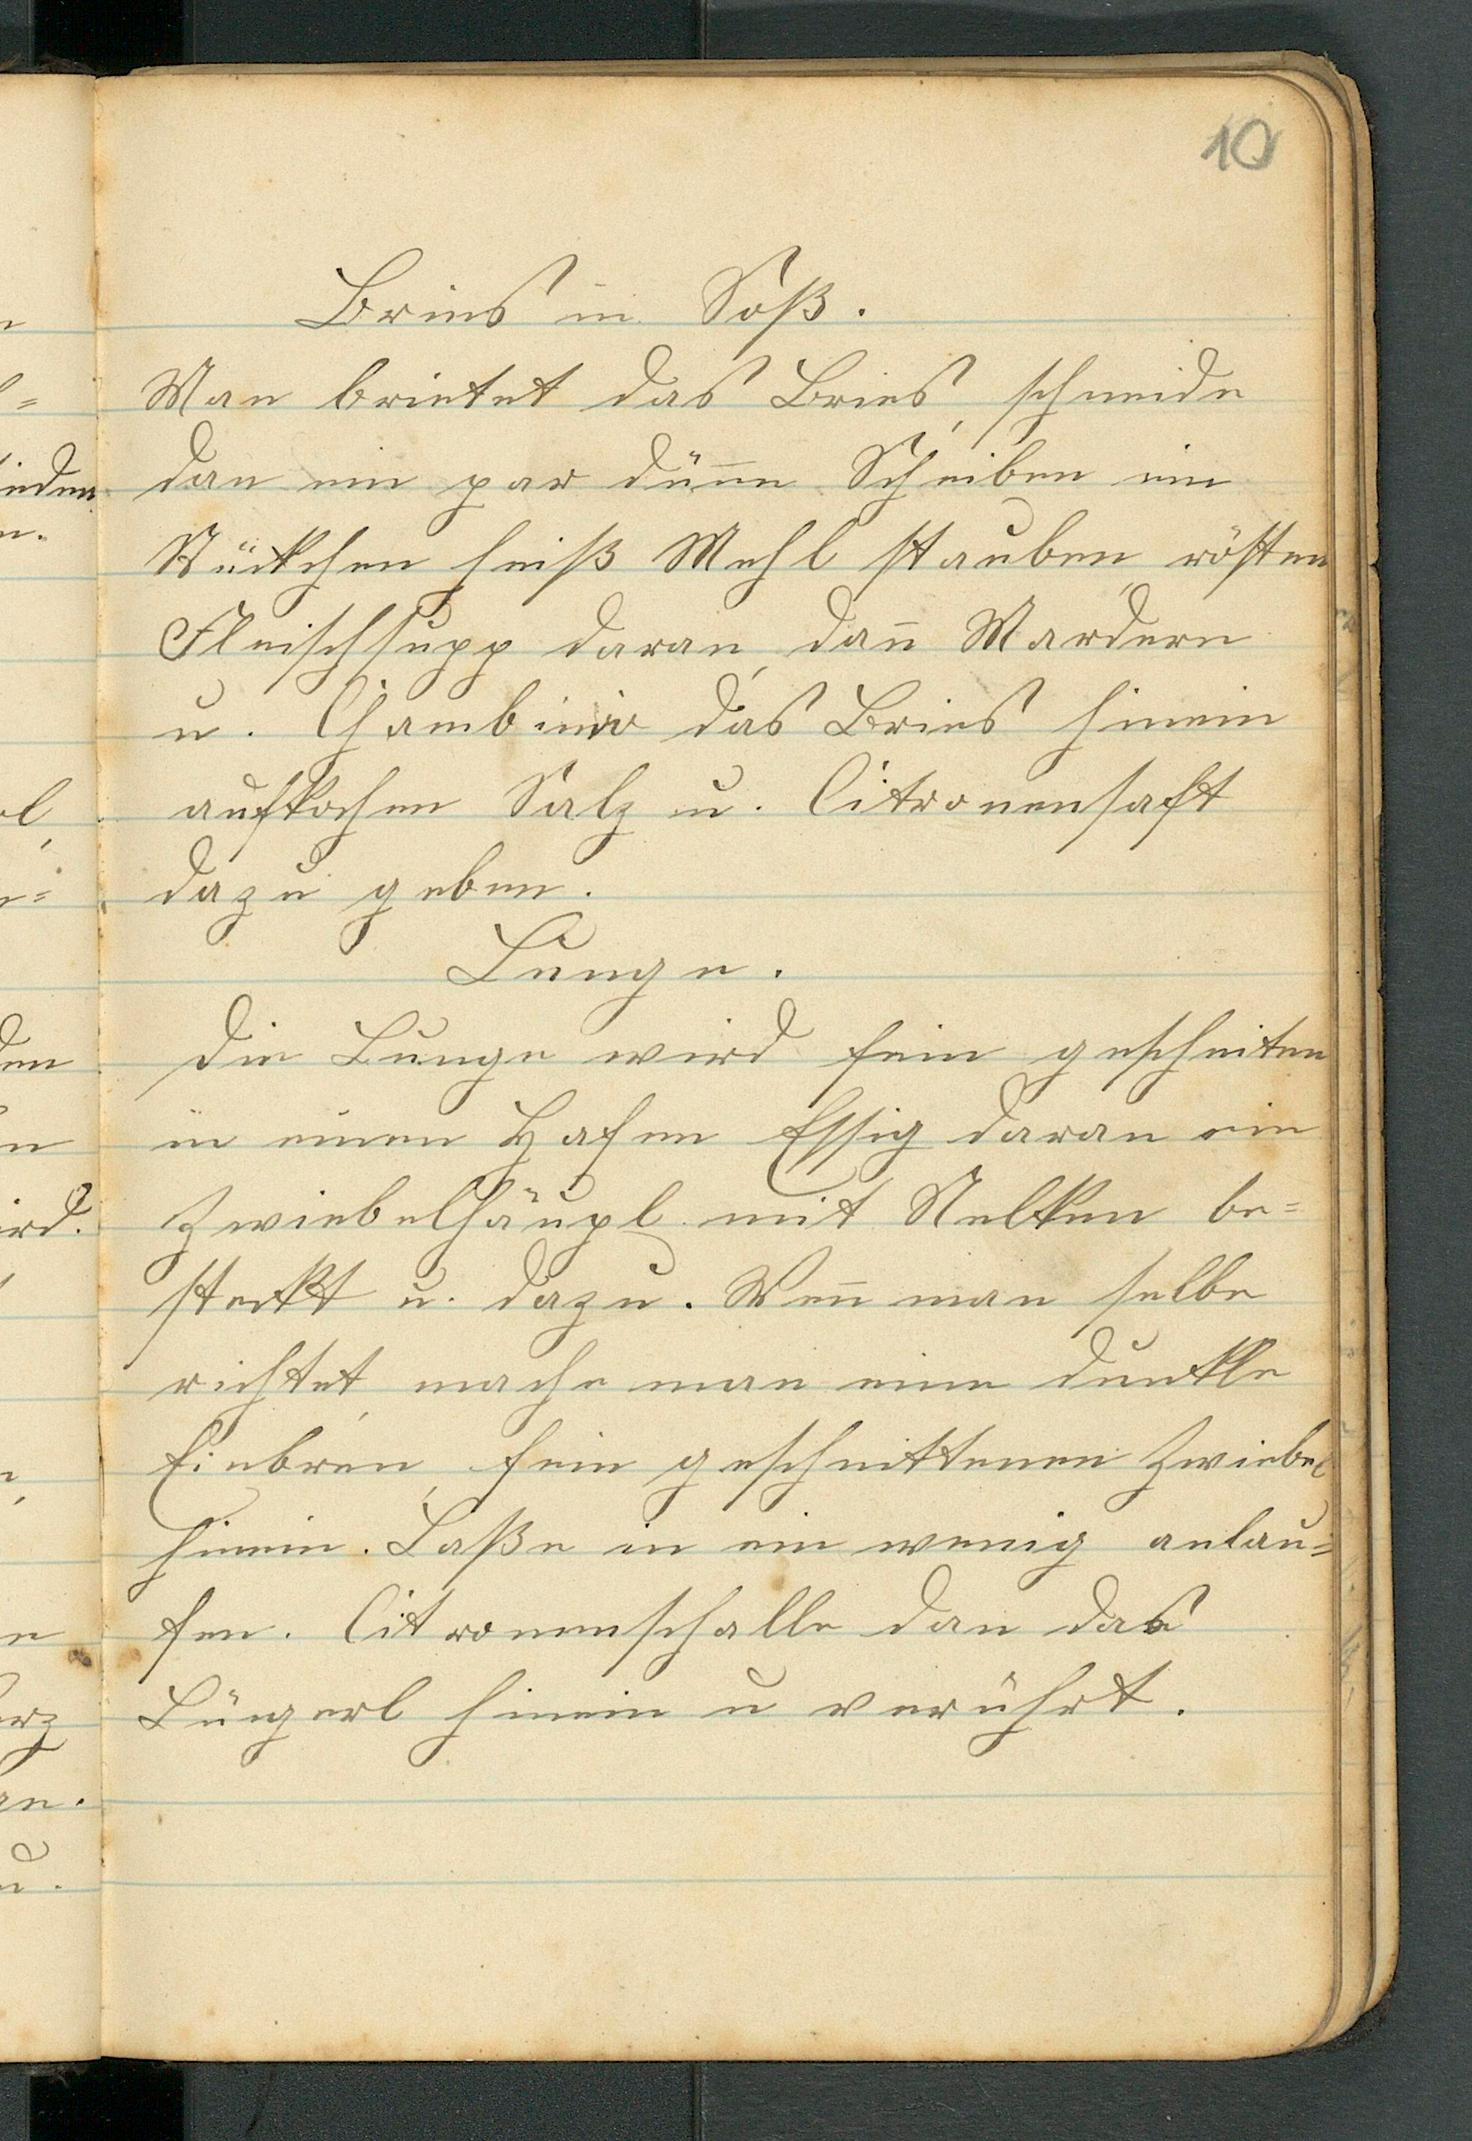 10
Bries in Soß.
Man brietet das Bries, schneide
dan ein par dünne Scheiben ein
Stückchen heiß Mehl stauben, rösten
Fleischsupp daran, dan̄ Mardern
u. Chambinio das Bries hinein
aufkochen Salz u. Citronensaft
dazu geben.
Lunge.
Die Lunge wird fein gescheiten
in einen Hafen Essig daran ein
Zwiebelhäupl mit Nelken be=
steckt u. dazu. Wen̄ man selbe
richtet, mache man eine dunkle
Einbren, fein geschnittenen Zwiebel
hinein. Laße in ein wenig anlau=
fen. Citronenschalle dan das
Lüngerl hinein u verührt.